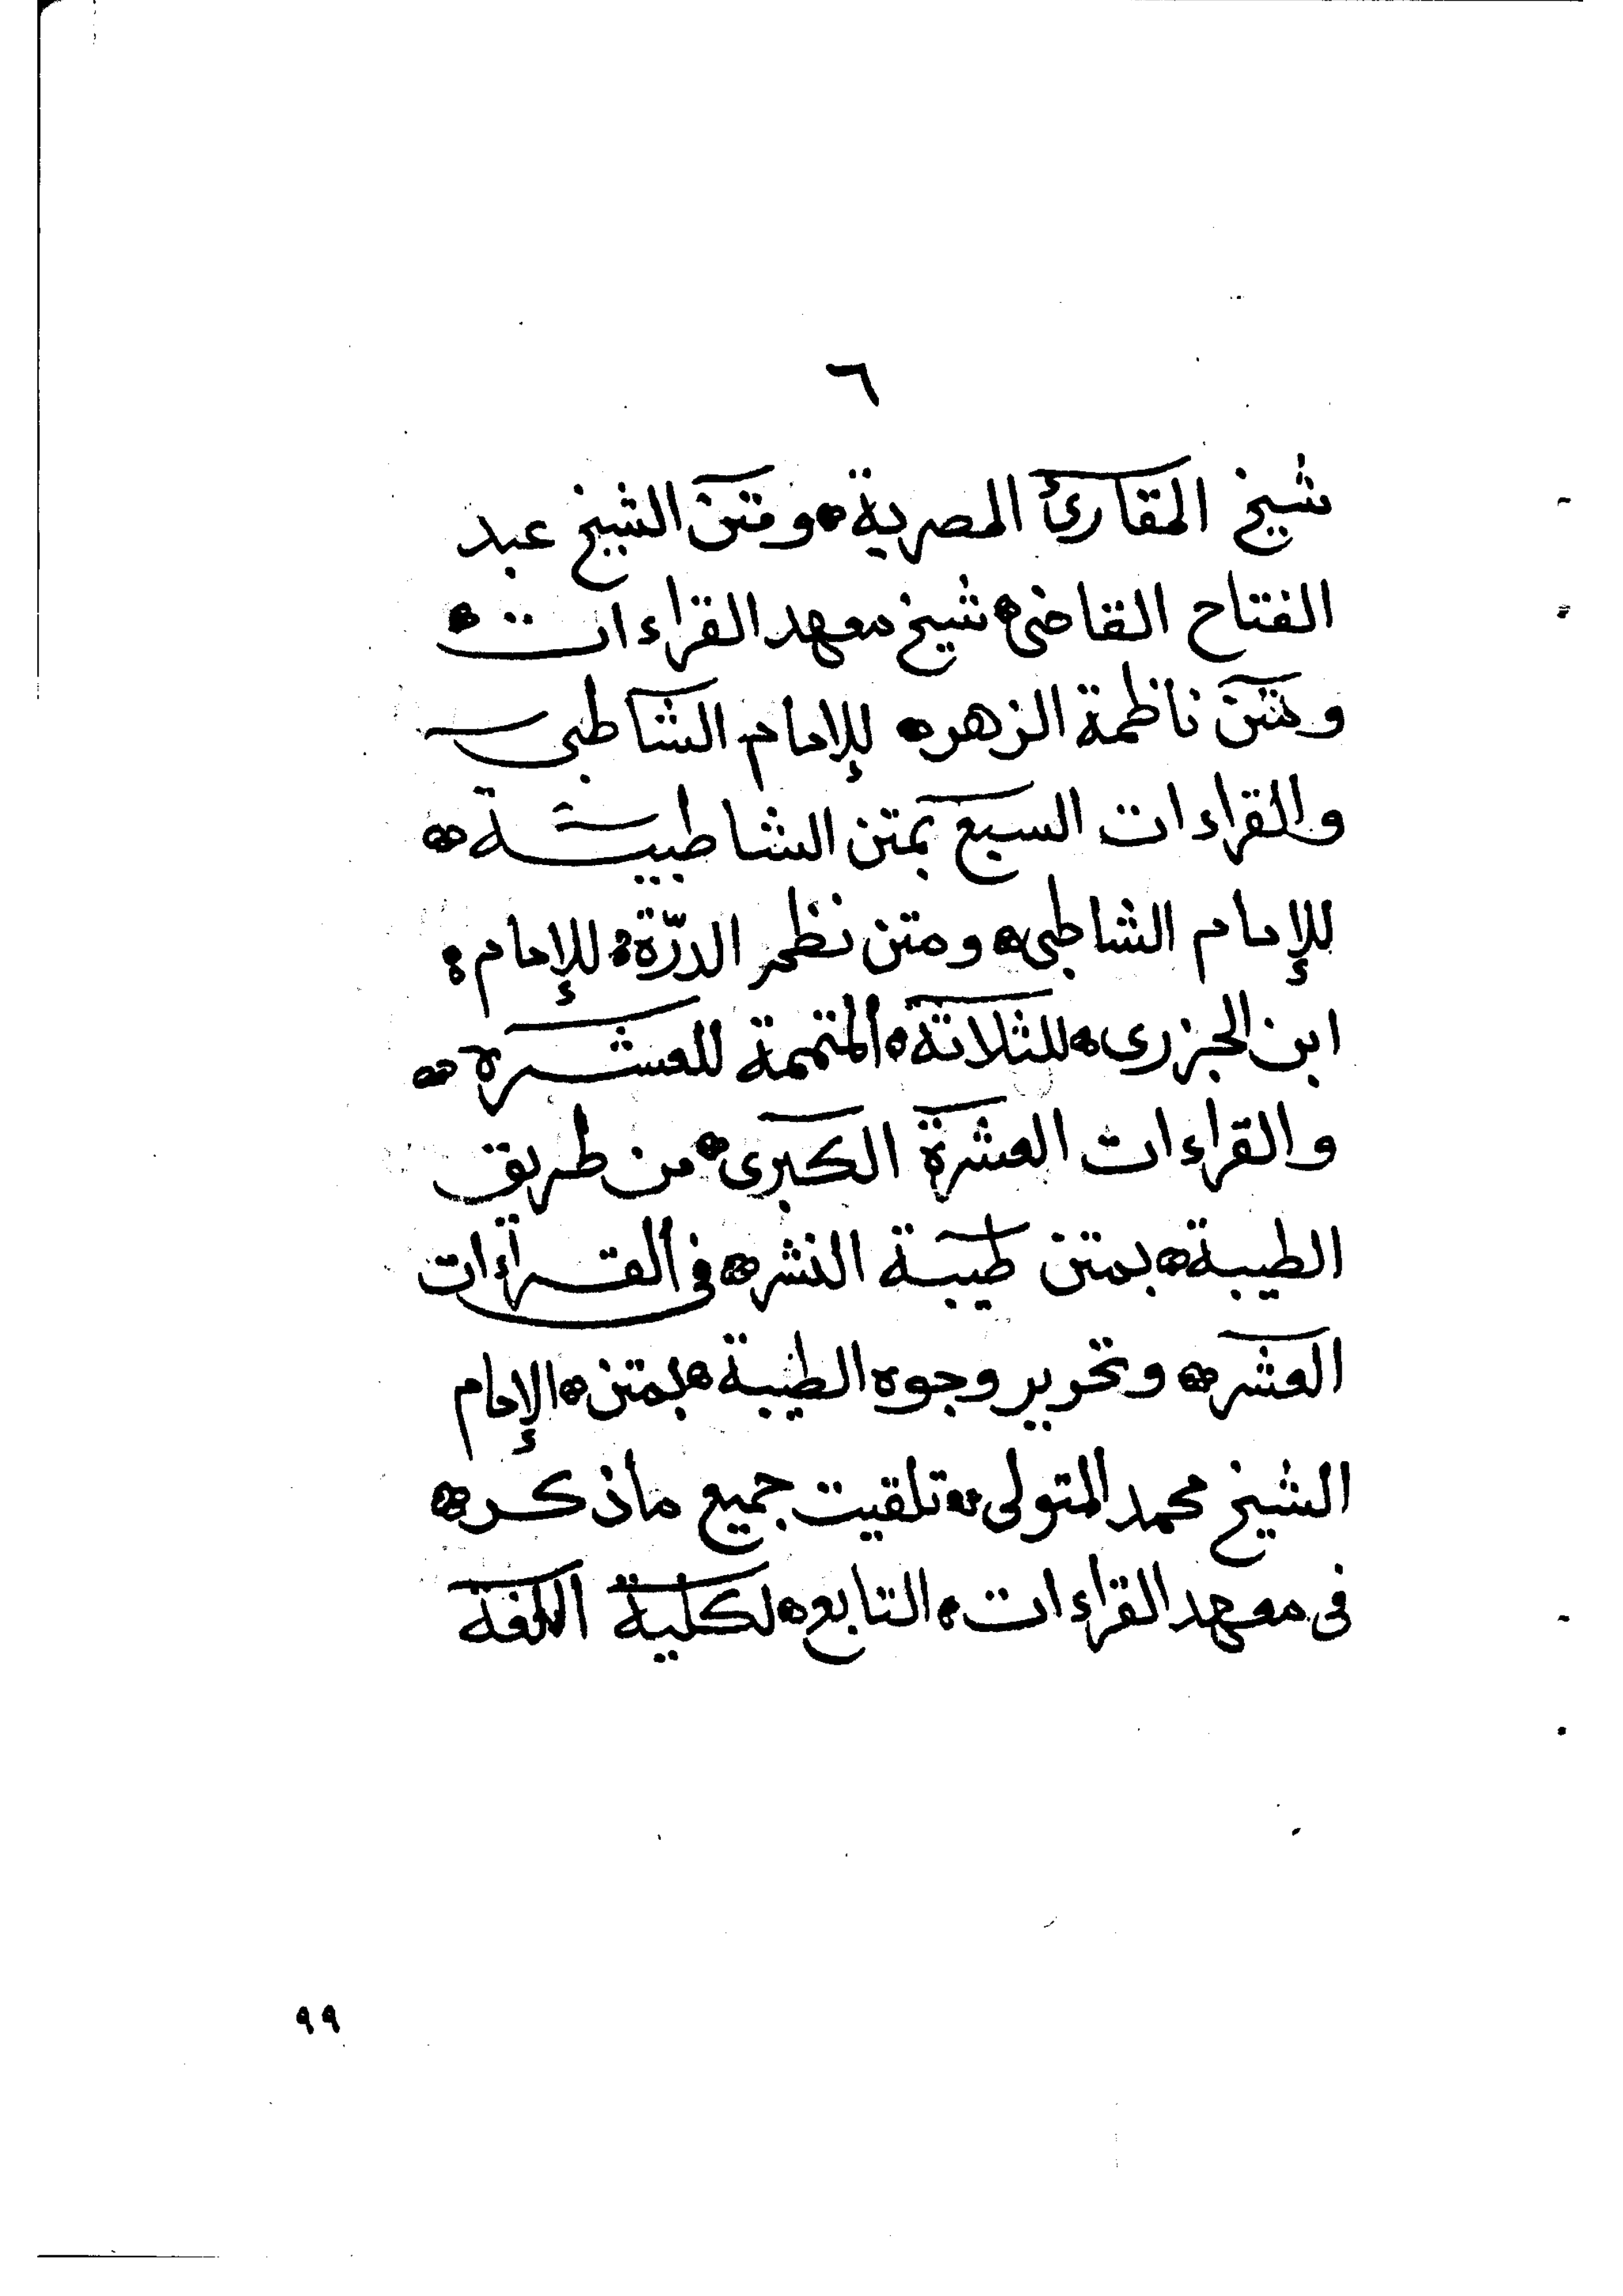 ٦
شيخ المقارئ المصرية ومتن الشيخ عبد
الفتاح القاضى شيخ معهد القراءات
ومتن ناظمة الزهر للإمام الشاطبى
والقراءات السبع بمتن الشاطبية
للإمام الشاطبى ومتن نظم الدرّة للإمام
ابن الجزرى للثلاثة المتممة للعشرة
والقراءات العشرة الكبرى من طريق
الطيبة بمتن طيبة النشر فى القراءات
العشر وتحرير وجوه الطيبة بمتن الإمام
الشيخ محمد المتولى تلقيت جميع ماذكر
فى معهد القراءات التابع لكلية اللغة
٩٩